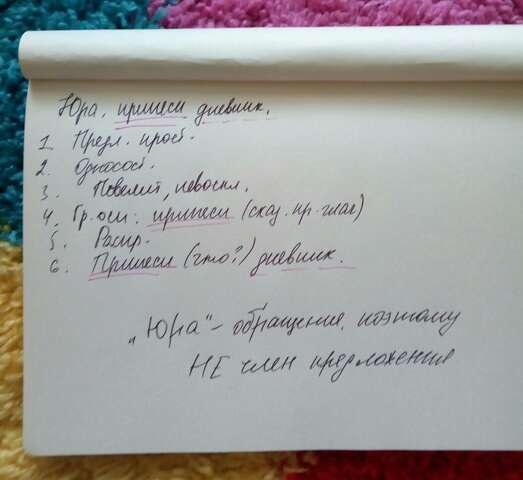 Юра, принеси дневник.
1. Предл. прост.
2. Односост.
3. Повелит, невоскл.
4. Гр. осн: принеси (сказ. пр. глаг)
5. Распр.
6. Принеси (что?) дневник.
„Юра" - обращение, поэтому
НЕ член предложения